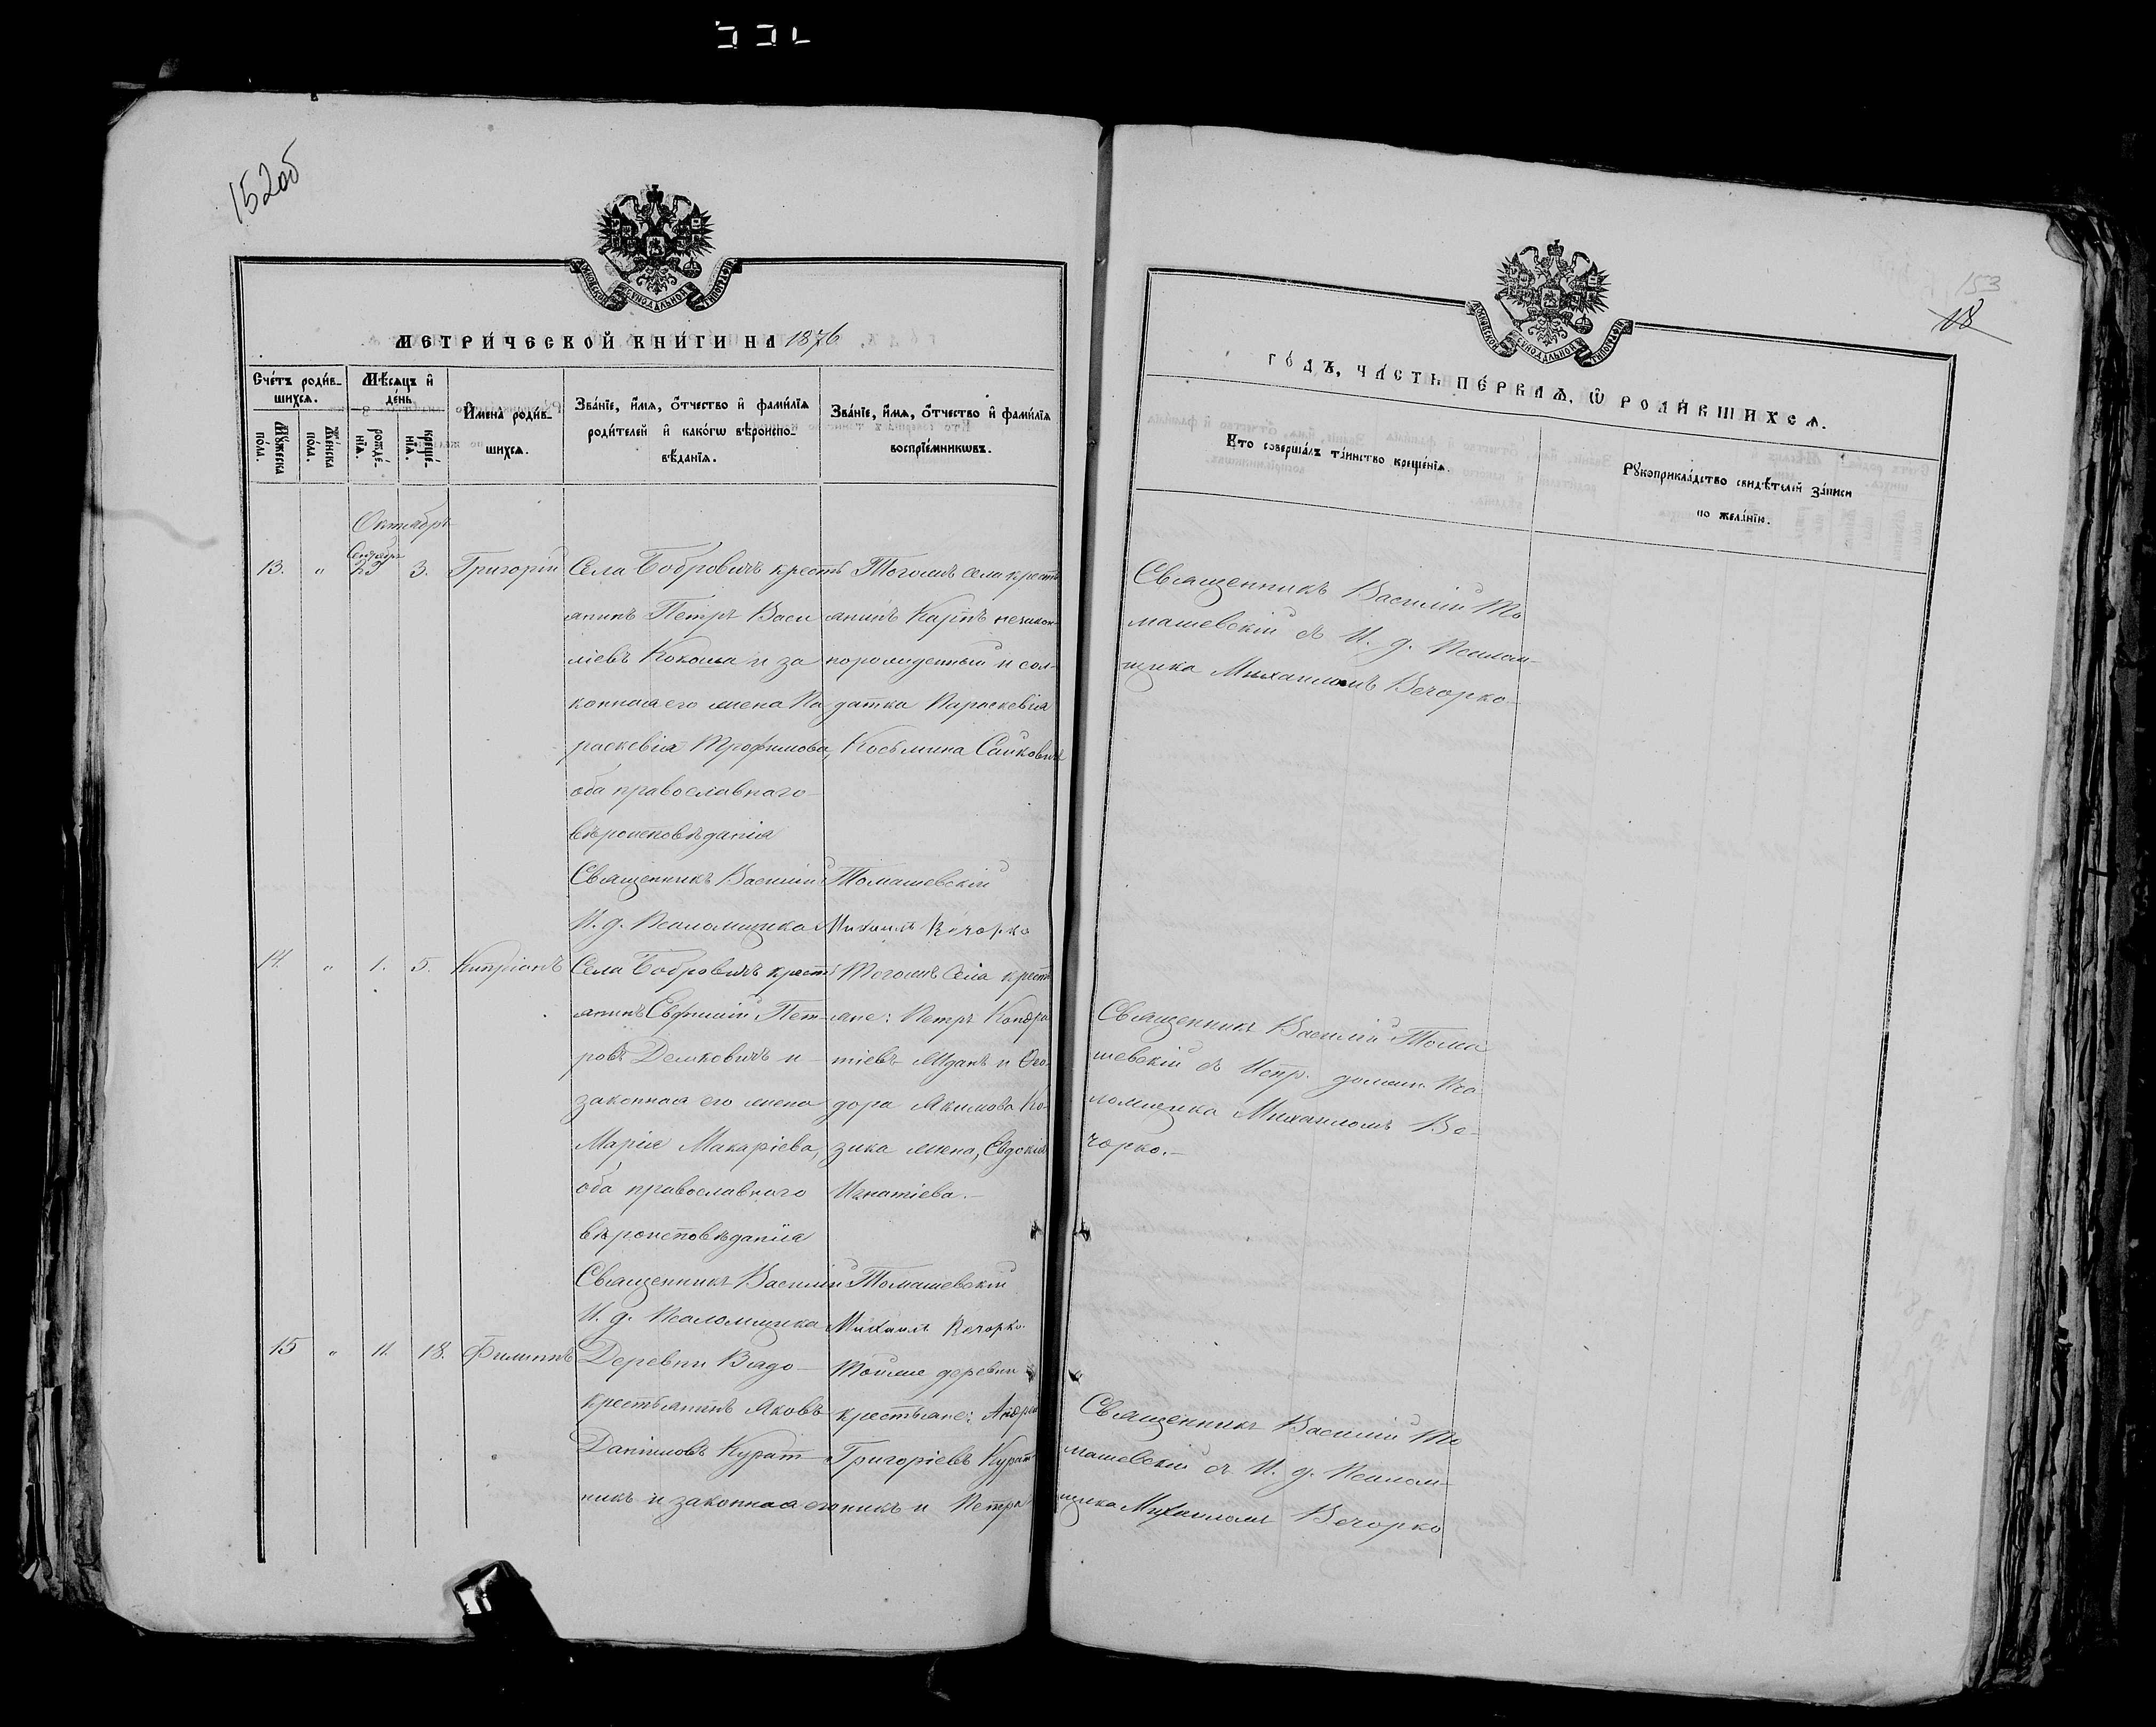 152об
153
18
МЕТРИЧЕСКОЙ КНИГИ НА 1876
ГОДЪ, ЧАСТЬ ПЕРВАЯ, Ѡ РОДИВШИХСЯ.
Счетъ родив-
шихся.
Мѣсяцъ и
день
Мужеска пола.
Женска пола.
рожде-
нія.
креще-
нія.
Имена родив-
шихся.
Званіе, имя, отчество и фамилія
родителей и какогѡ вѣроиспо-
вѣданія.
Званіе, имя, отчество и фамилія
воспріемниковъ.
Кто совершалъ таинство крещенія.
Рукоприкладство свидѣтелей записи
по желанію.
Октябрь
Сентябр
13. " 3. Григорій
Села Бобровичъ кресть
янинъ Петръ Васи
ліевъ Кокоша и за
конная его жена Па
раскевія Трофимова,
оба православнаго
вѣроисповѣданія
Тогожъ села кресть
янинъ Карпъ незакон-
норожденный и сол-
датка Параскевія
Косьмина Сайковичъ
Священникъ Василій Томашевскій
И. д. Псаломщика Михаилъ Вечорко
Священникъ Василій То
машевскій съ И. д. Псалом-
щика Михаиломъ Вечорко
14. " 1. 5. Кипріанъ
Села Бобровичъ кресть
янинъ Евфимій Пет-
ровъ Демковичъ и
законная его жена
Марія Макаріева,
оба православнаго
вѣроисповѣданія
Тогожъ села кресть
яне: Петръ Кондра
тіевъ Жданъ и Ѳео
дора Якимова Ко-
зика жена, Евдокія
Игнатіева.
Священникъ Василій Томашевскій
И. д. Псаломщика Михаилъ Вечорко.
Священникъ Василій Тома
шевскій съ Испр. должн. Пса
ломщика Михаиломъ Ве-
чорко.
15 " 11. 18. Филиппъ
Деревни Вядо
крестьянинъ Яковъ
Даніиловъ Курат
никъ и законная его
Тойже деревни
крестьяне: Андрей
Григоріевъ Курат
никъ и Петра
Священникъ Василій То
машевскій съ И. д. Псалом-
щика Михаиломъ Вечорко